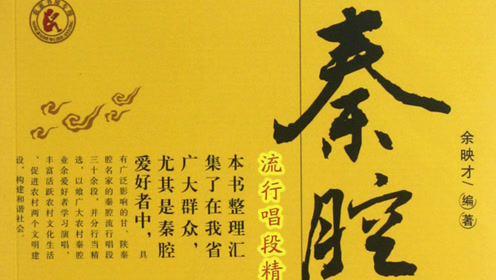 秦腔
余映才 编著
流行唱段精
本书整理汇
集了在我省
广大群众，
尤其是秦腔
爱好者中，具
有广泛影响的甘、陕秦
腔名家的秦腔流行唱段
三十余段，并分行当精
选，以飨广大农村秦腔
业余爱好者学习演唱，
丰富活跃农村文化生活
，促进农村两个文明建
设，构建和谐社会。